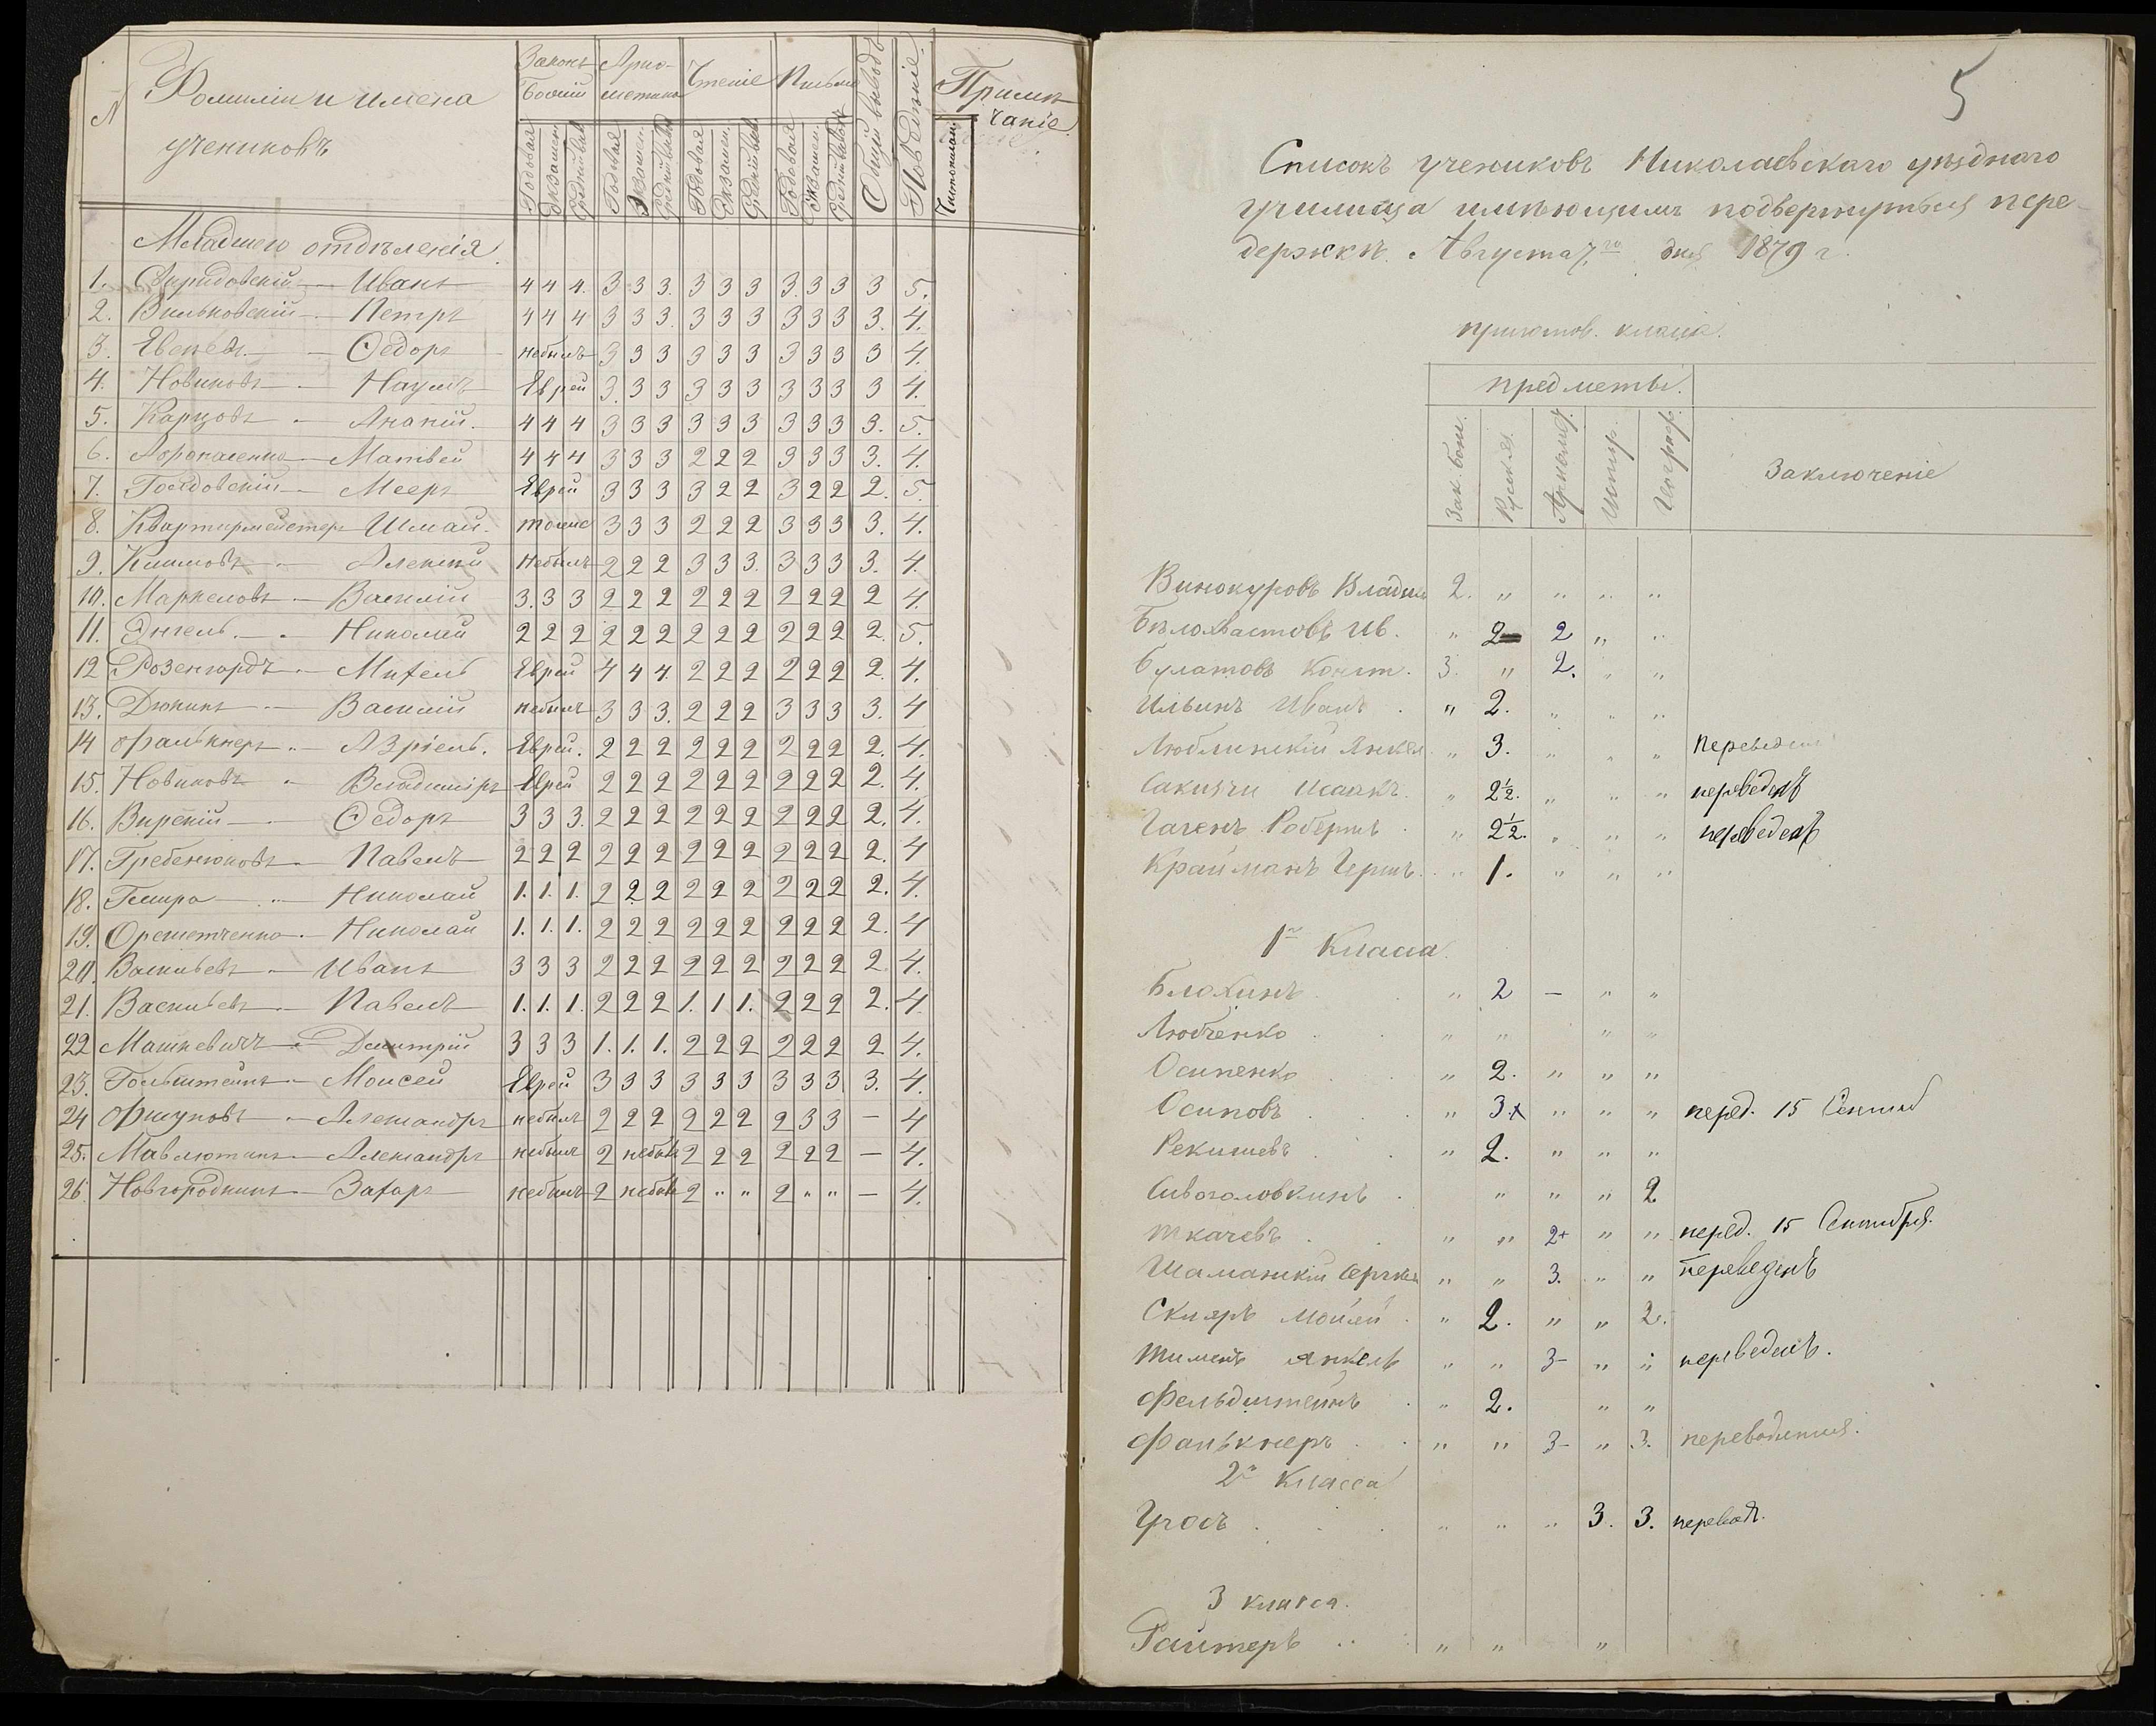 № Фамиліи и имена учениковъ Законъ Божій Ариѳметика Чтеніе Письмо Общій выводъ Поведеніе Примѣчаніе
Годовая Экзамен. Средній выв. Годовая Экзамен. Средній выв. Годовая Экзамен. Средній выв. Годовая Экзамен. Средній выводъ
Младшего отдѣленія
1. Свиридовскій — Иванъ 4 4 4. 3 3 3. 3 3 3 3. 3 3 3 5.
2. Вильковскій — Петръ 4 4 4 3 3 3. 3 3 3 3 3 3 3. 4.
3. — Ѳедоръ небылъ 3 3 3 3 3 3 3 3 3 3 4.
4. Новиковъ — Наумъ Еврей 3. 3 3 3 3 3 3 3 3 3 4.
5. Карцовъ — Ананій. 4 4 4 3 3 3 3 3 3 3 3 3 3. 5.
6. — Матвей 4 4 4 3 3 3 2 2 2 3 3 3 3. 4.
7. Голдовскій — Мееръ Еврей 3 3 3 3 2 2 3 2 2 2. 5.
8. Квартирмейстеръ Шмай. тоже 3 3 3 2 2 2 3 3 3 3. 4.
9. Климовъ — Алексѣй небылъ 2 2 2 3 3 3. 3 3 3 3. 4.
10. Маркеловъ — Василій 3. 3 3 2 2 2 2 2 2 2 2 2 2 4.
11. Энгель — Николай 2 2 2 2 2 2 2 2 2 2 2 2 2. 5.
12 Розенгордъ — Михель Еврей 4 4 4. 2 2 2 2 2 2 2. 4.
13. Дюкинъ — Василій небылъ 3 3 3. 2 2 2 3 3 3 3. 4
14 Фалькнеръ — Азріель. Еврей. 2 2 2 2 2 2 2 2 2 2. 4.
15. Новиковъ — Владиміръ Еврей 2 2 2 2 2 2 2 2 2 2. 4.
16. Вирскій — Ѳедоръ 3 3 3. 2 2 2 2 2 2 2 2 2 2. 4.
17. Гребенюковъ — Павелъ 2 2 2 2 2 2 2 2 2 2 2 2 2. 4
18. — Николай 1. 1. 1. 2 2 2 2 2 2 2 2 2 2. 4.
19. Орешетченко — Николай 1. 1. 1. 2 2 2 2 2 2 2 2 2 2. 4
20. Васильевъ — Иванъ 3 3 3 2 2 2 2 2 2 2 2 2 2. 4.
21. Васильевъ — Павелъ 1. 1. 1. 2 2 2 1. 1 1. 2 2 2 2. 4
22 Машкевичъ — Дмитрій 3 3 3 1. 1. 1. 2 2 2 2 2 2 2 4.
23. Гольштейнъ — Моисей Еврей 3 3 3 3 3 3 3 3 3 3. 4.
24 — Александръ небылъ 2 2 2 2 2 2 2 3 3 — 4
25. Мавлютинъ — Александръ небылъ 2 небылъ 2 2 2 2 2 2 — 4.
26. Новгородкинъ — Захаръ небылъ 2 небылъ 2 " " 2 " " — 4.
5
Списокъ учениковъ Николаевскаго уѣзднаго
училища имѣющимъ подвергнуться пере-
держкѣ. Августа 7го дня 1879 г.
приготов. класса.
предметы.
Зак. бож. Русск. яз. Ариѳмет. Истор. Географ. Заключеніе
Винокуровъ Владим 2. " " " "
Бѣлохвастовъ Ив. " 2 2 " "
Булатовъ Конст. 3. " 2. " "
Ильинъ Иванъ " 2. " " "
Люблинскій Янкел " 3. " " " Переведенъ
Сакизчи Исаакъ. " 2½. " " " переведенъ
Гагенъ Робертъ " 2½. " " " переведенъ
Крайманъ Герш. " 1. " " "
1го Класса.
Блохинъ " 2 — " "
Любченко " " " "
Осипенко " 2. " " "
Осиповъ " 3.x " " " перед. 15 Сентяб
Рекишевъ " 2. " " "
Сивоголовкинъ " " " 2
Ткачевъ " " 2+ " " перед. 15 Сентября.
Шаманскій Сергѣй " " 3. " " переведенъ
Скляръ Мойсей " 2. " " 2.
Тименъ Янкель " " 3- " " переведенъ.
Фельдштейнъ " 2. " "
Фалькнеръ " " 3- " 3. переводится.
2го Класса
Гросъ " " " 3. 3. перевод.
3 класса.
Райтеръ " " "